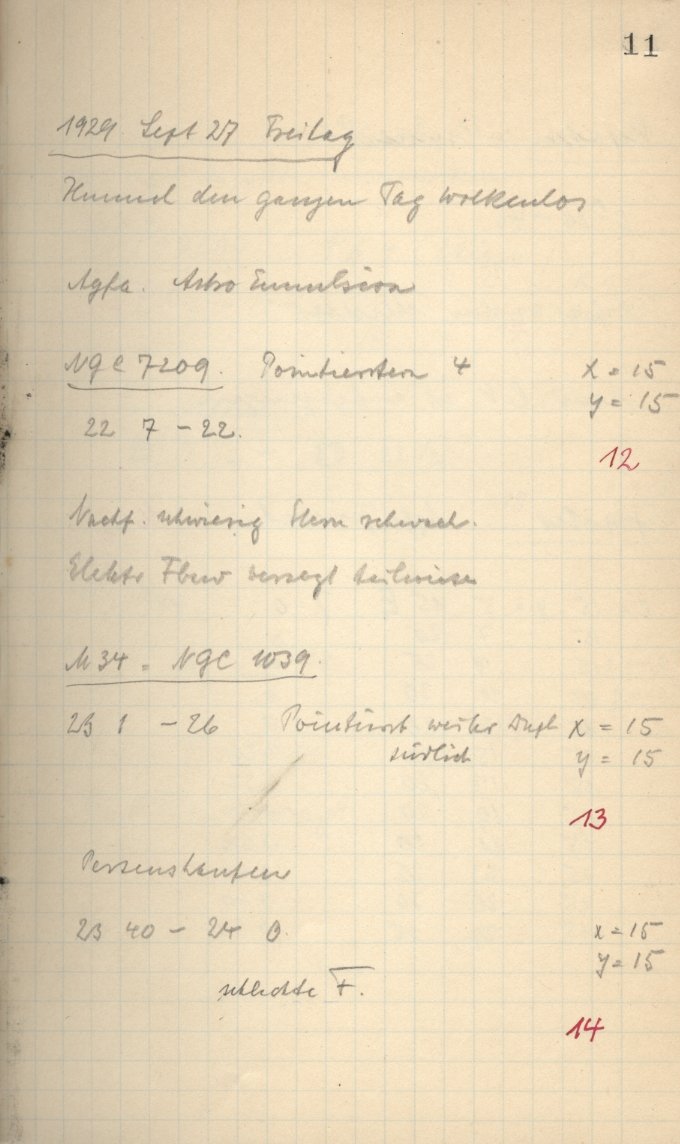 11
1929 Sept 27 Freitag
Himmel den ganzen Tag wolkenlos
Agfa. Astro Emulsion
NGC 7209. Pointierstern 4 x = 15
y = 15
22 7 - 22.
12
Nachf. schwierig Stern schwach.
Elektr versagt teilweise
M 34 = NGC 1039.
23 1 - 26 Pointierst weiter x = 15
südlich y = 15
13
Perseushaufen
23 40 - 24 0. x = 15
y = 15
schlechte F.
14